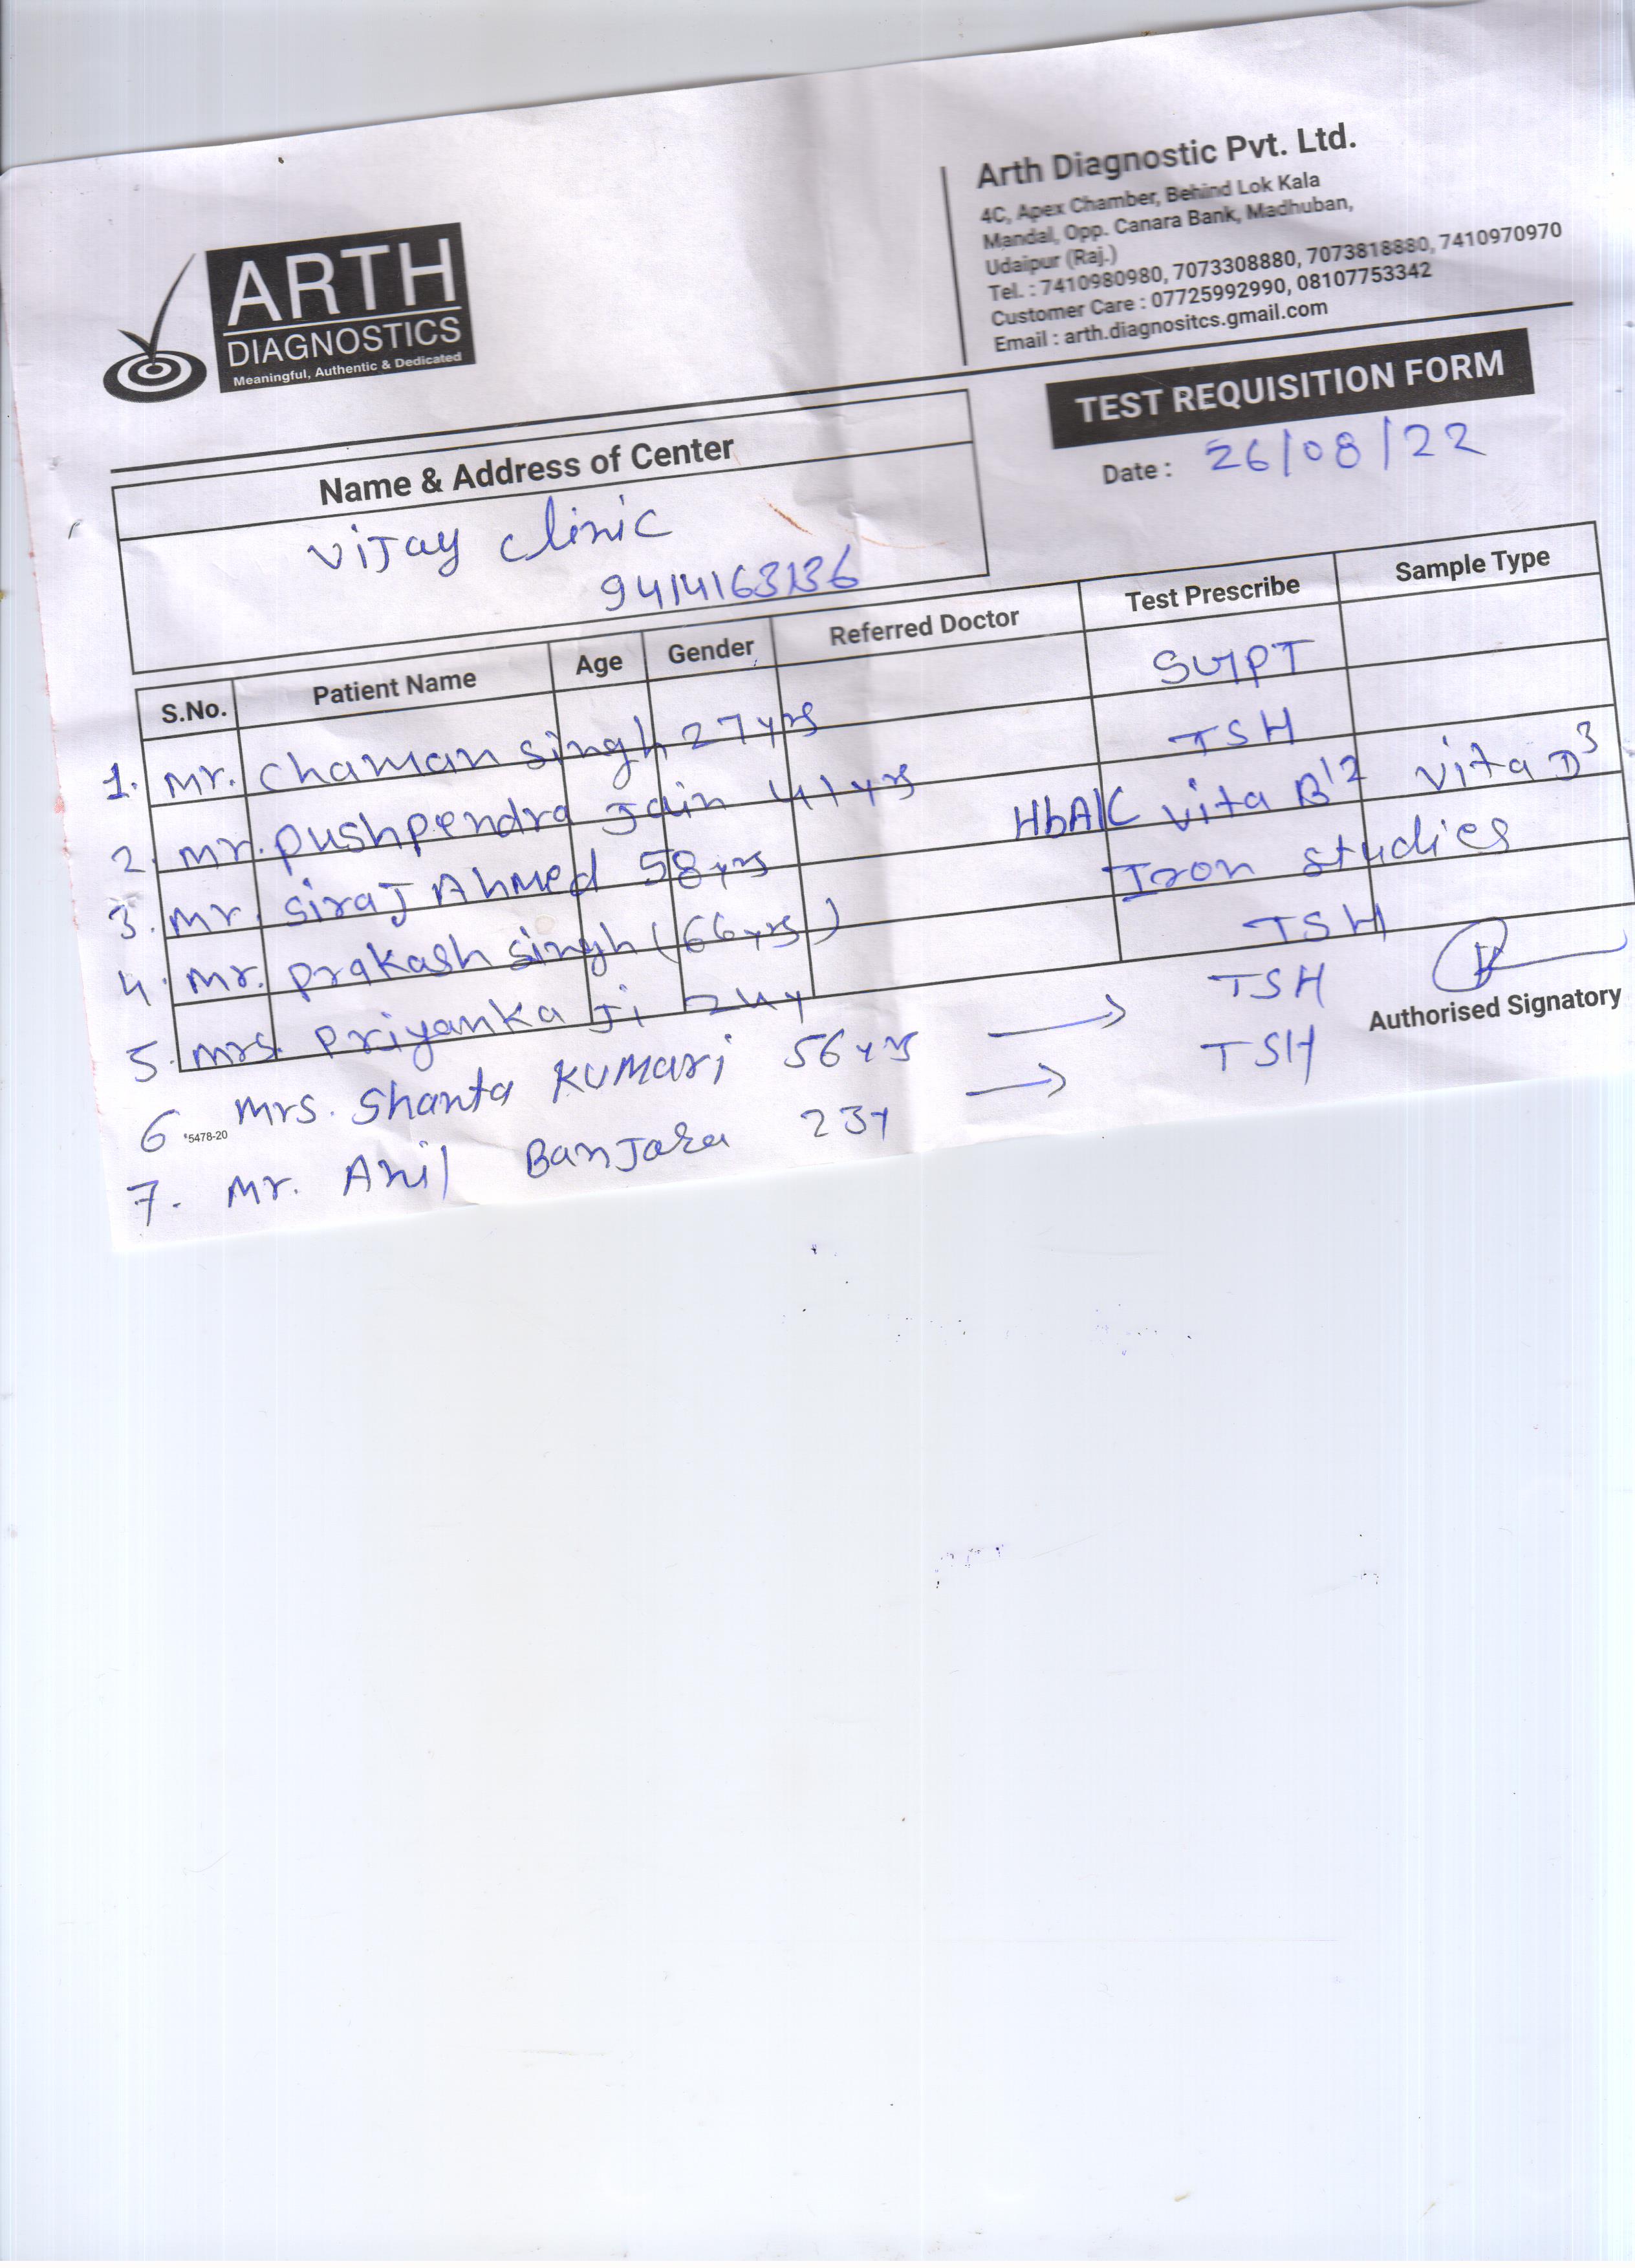 ARTH
DIAGNOSTICS
Meaningful, Authentic & Dedicated
Arth Diagnostic Pvt. Ltd.
4C, Apex Chamber, Behind Lok Kala
Mandal, Opp. Canara Bank, Madhuban,
Udaipur (Raj.)
Tel. : 7410980980, 7073308880, 7073818880, 7410970970
Customer Care : 07725992990, 08107753342
Email : arth.diagnositcs.gmail.com
TEST REQUISITION FORM
Date : 26/08/22
Name & Address of Center
Vijay Clinic
9414163136
S.No. Patient Name Age Gender Referred Doctor Test Prescribe Sample Type
1. Mr. Chaman Singh 27yrs SGPT
2. Mr. Pushpendra Jain 41yrs TSH
3. Mr. Siraj Ahmed 58yrs HbA1C Vita B12 Vita D3
4. Mr. Prakash Singh (66yrs) Iron Studies
5. Mrs. Priyanka Ji 24y TSH
6 Mrs. Shanta Kumari 56yrs → TSH
7. Mr. Anil Banjara 23y → TSH
Authorised Signatory
*5478-20